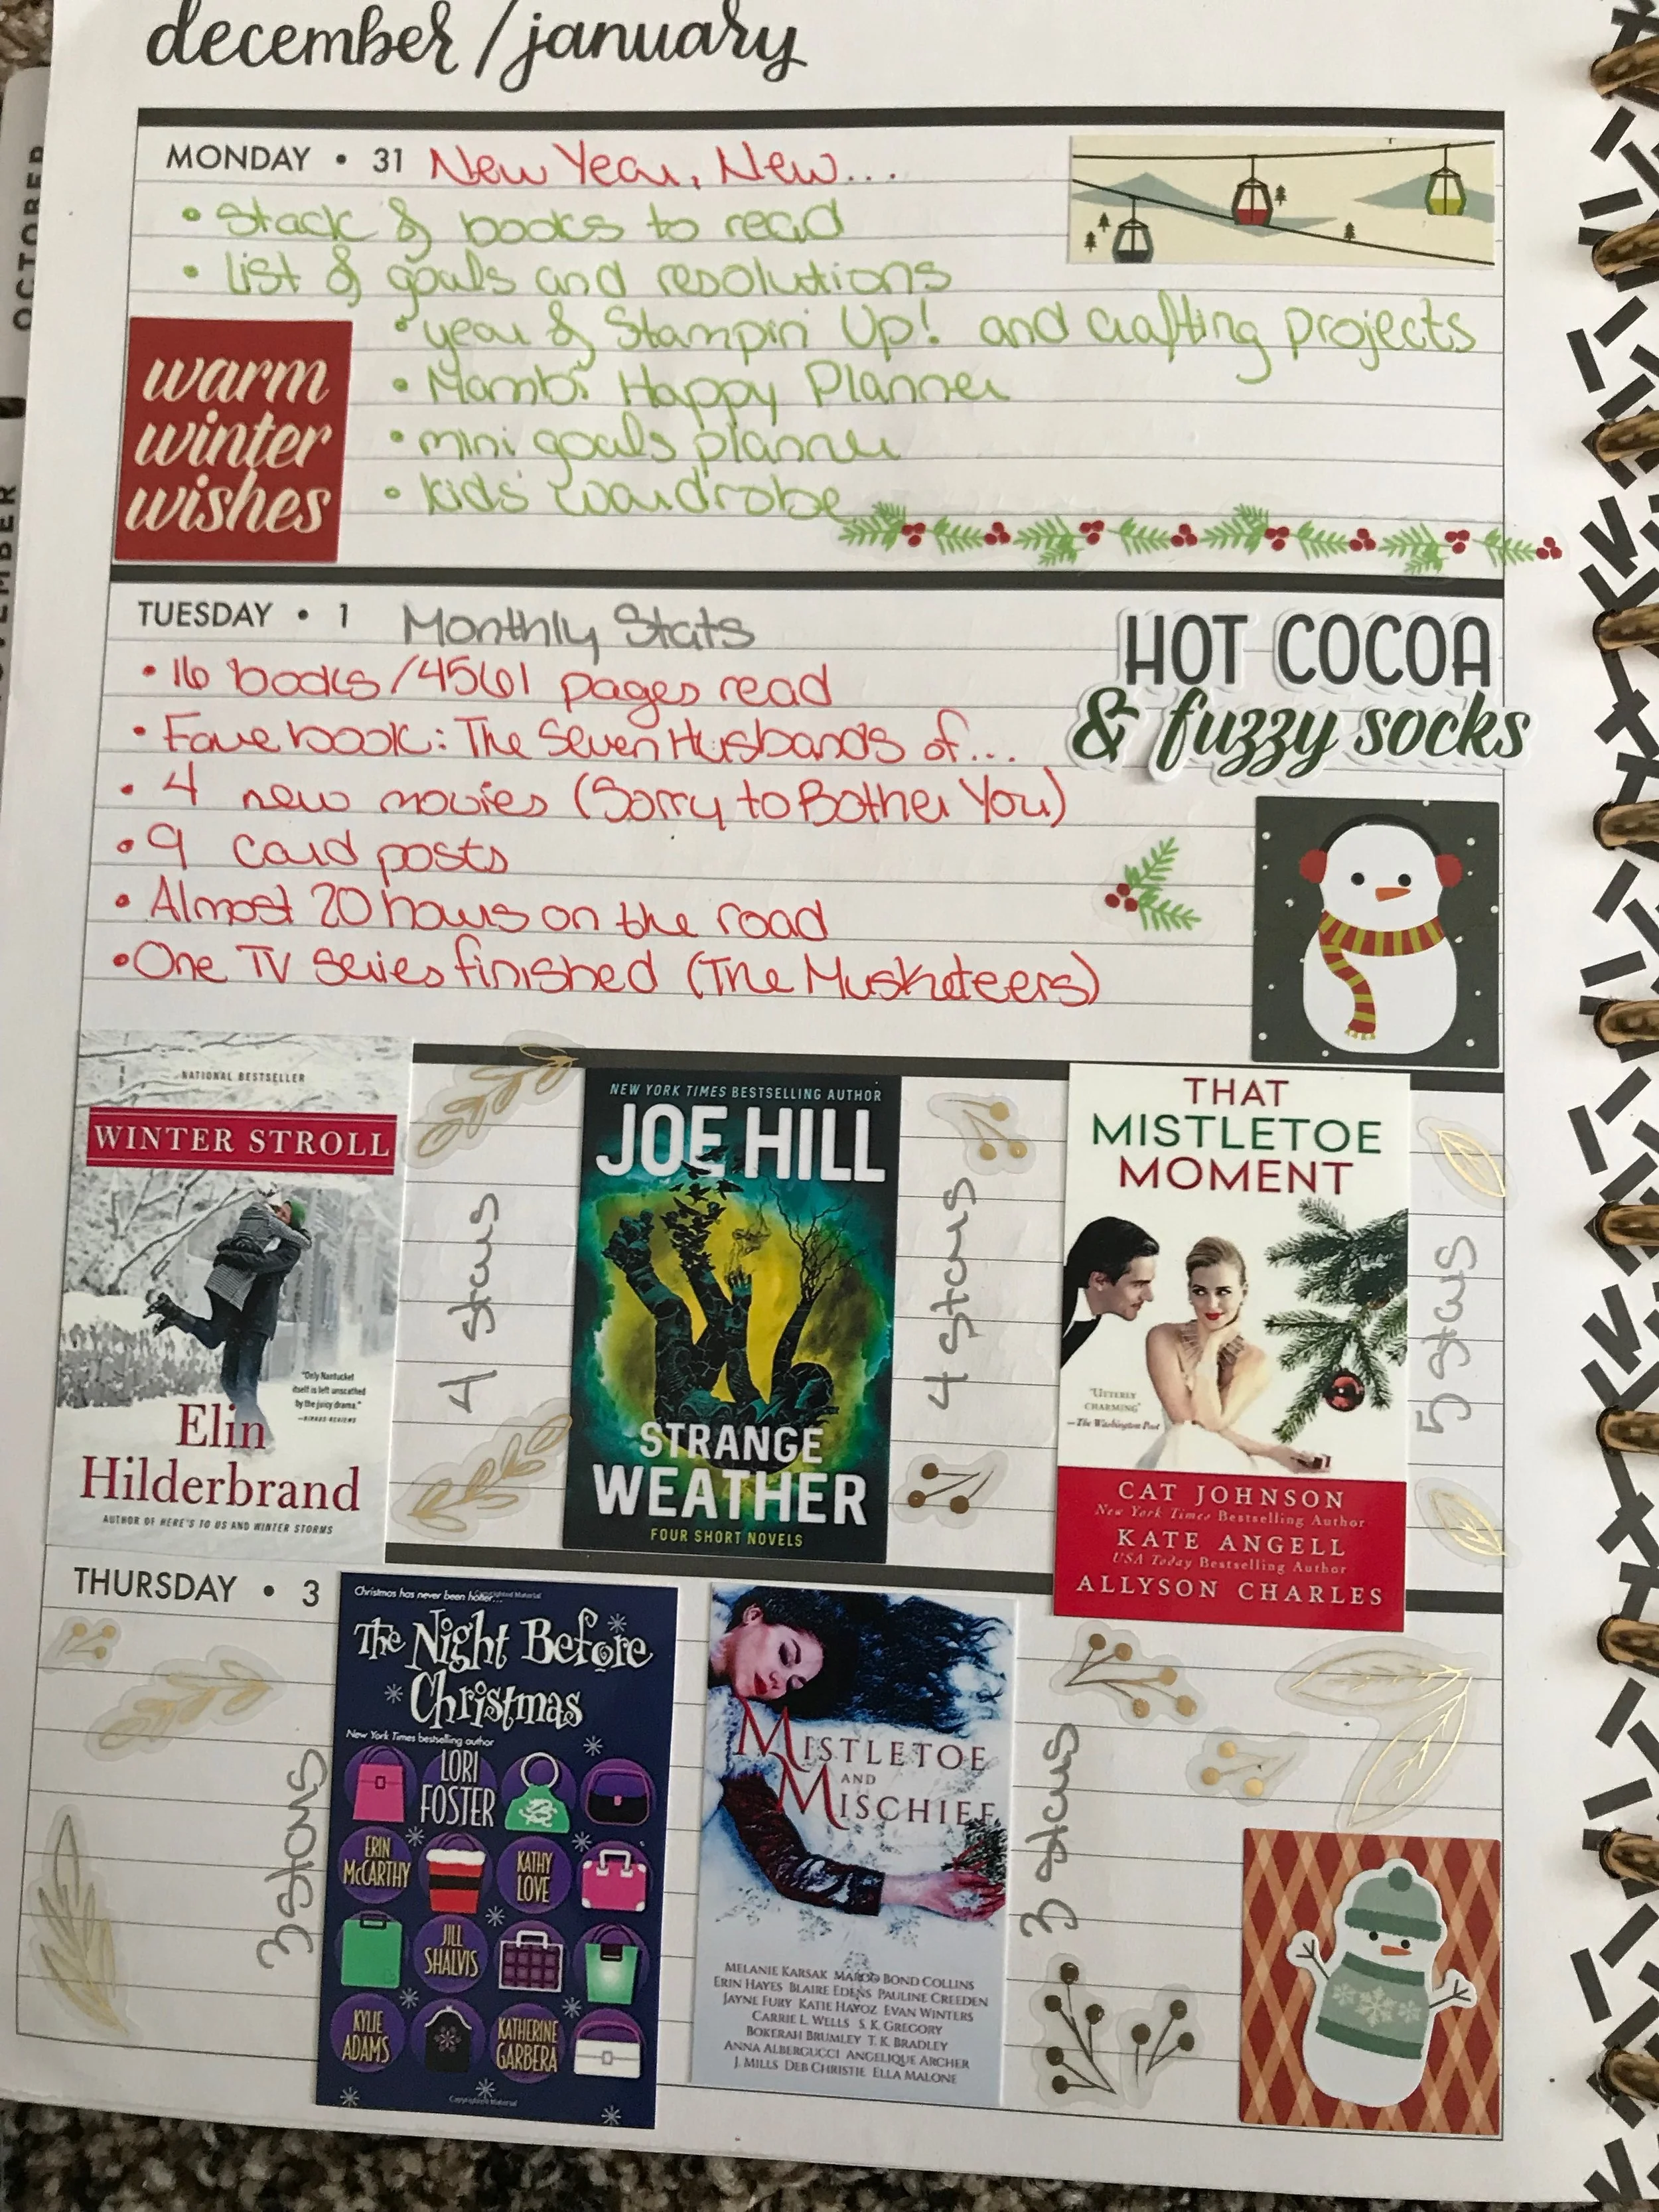 december / january
OCTOBER
MONDAY • 31 New Year, New...
• Stack of books to read
• list of goals and resolutions
• year of Stampin' Up! and crafting projects
• Mambi Happy Planner
• mini goals planner
• kids' wardrobe
warm
winter
wishes
TUESDAY • 1 Monthly Stats
• 16 books/4561 pages read
• Fave book: The Seven Husbands of...
• 4 new movies (Sorry to Bother You)
• 9 card posts
• Almost 20 hours on the road
• One TV series finished (The Musketeers)
HOT COCOA
& fuzzy socks
NATIONAL BESTSELLER
WINTER STROLL
"Only Nantucket
itself is left unscathed
by the juicy drama."
—KIRKUS REVIEWS
Elin
Hilderbrand
AUTHOR OF HERE'S TO US AND WINTER STORMS
4 stars
NEW YORK TIMES BESTSELLING AUTHOR
JOE HILL
STRANGE
WEATHER
FOUR SHORT NOVELS
4 stars
THAT
MISTLETOE
MOMENT
"UTTERLY
CHARMING"
—The Washington Post
CAT JOHNSON
New York Times Bestselling Author
KATE ANGELL
USA Today Bestselling Author
ALLYSON CHARLES
5 stars
THURSDAY • 3
3 stars
Christmas has never been hotter...
Copyrighted Material
The Night Before
Christmas
New York Times bestselling author
LORI
FOSTER
ERIN
McCARTHY
KATHY
LOVE
JILL
SHALVIS
KYLIE
ADAMS
KATHERINE
GARBERA
Copyrighted Material
MISTLETOE
AND
MISCHIEF
MELANIE KARSAK MARGO BOND COLLINS
ERIN HAYES BLAIRE EDENS PAULINE CREEDEN
JAYNE FURY KATIE HAYOZ EVAN WINTERS
CARRIE L. WELLS S. K. GREGORY
BOKERAH BRUMLEY T. K. BRADLEY
ANNA ALBERGUCCI ANGELIQUE ARCHER
J. MILLS DEB CHRISTIE ELLA MALONE
3 stars